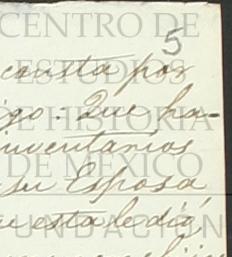 CENTRO DE
5
ESTUDIOS
consta por
DE HISTORIA
igo: Que ha-
inventarios
DE MÉXICO
su Esposa
esta le dió
FUNDACIÓN